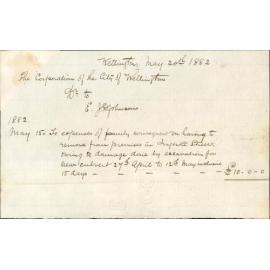 Wellington May 20th 1882
The Corporation of the City of Wellington
Dr to
E. Johnson
1882
May 15 - To expenses of family consequent on having to
remove from premises in Ingestre Street
owing to damage done by excavation for
new culvert 27th April to 12th May inclusive
15 days - - - - £10-0-0